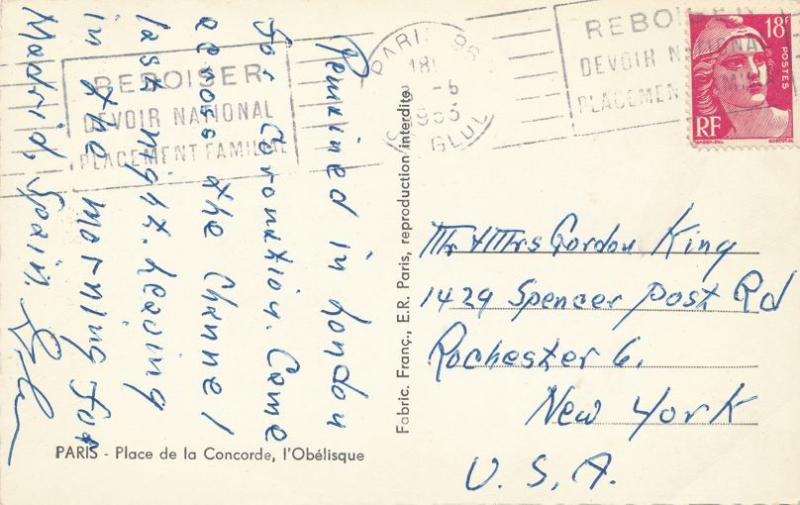 Remained in London
for Coronation. Came
across the Channel
last night. Leaving
in the morning for
Madrid, Spain.
REBOISER
DEVOIR NATIONAL
PLACEMENT FAMILIAL
PARIS
18
-6
1953
GLUC
REBOISER
DEVOIR NATIONAL
PLACEMENT FAMI
18F
POSTES
RF
Mr & Mrs Gordon King
1429 Spencer Post Rd
Rochester 6.
New York
U. S. A.
Fabric. Franç., E.R. Paris, reproduction interdite
PARIS - Place de la Concorde, l'Obélisque